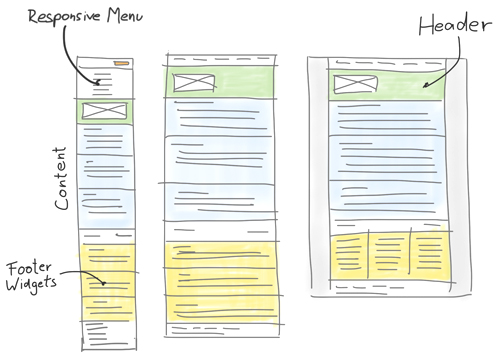 Responsive Menu
Header
Content
Footer
Widgets